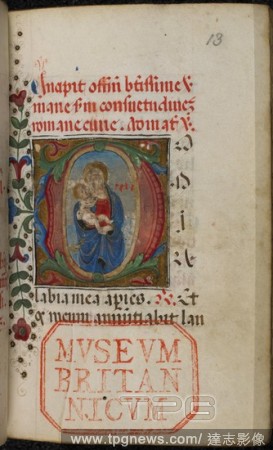 13
Incipit offm btissime v
marie sm consuetudinez
romane curie. Ad mat. V.
D
D
I
N
E
labia mea aperies. R. Et
os meum annuntiabit lau
MVSEVM
BRITAN
NICVM
TPG
www.tpgnews.com/達志影像